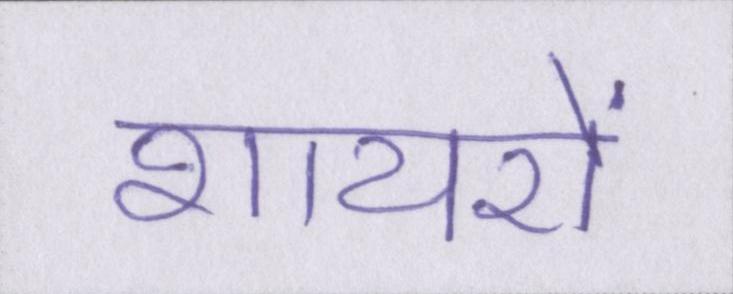 शायरों